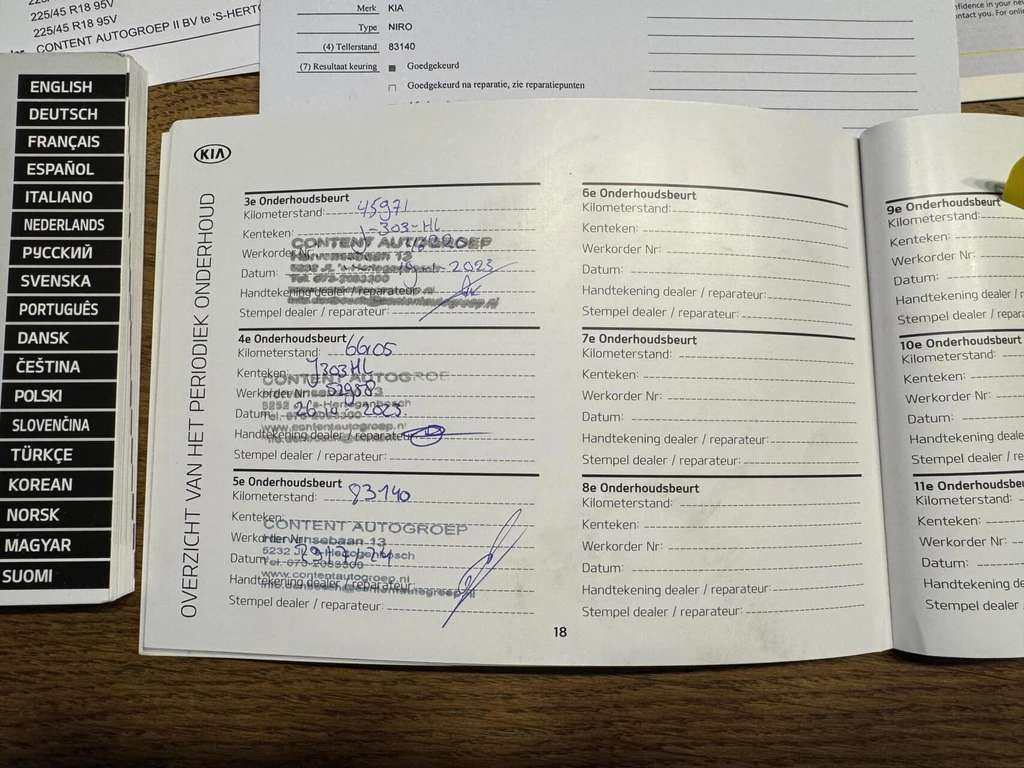 225/45 R18 95V
225/45 R18 95V
CONTENT AUTOGROEP II BV te 'S-HERTO
Merk KIA
Type NIRO
(4) Tellerstand 83140
(7) Resultaat keuring Goedgekeurd
Goedgekeurd na reparatie, zie reparatiepunten
nfidence in your new
ntact you. For onli
ENGLISH
DEUTSCH
FRANÇAIS
ESPAÑOL
ITALIANO
NEDERLANDS
РУССКИЙ
SVENSKA
PORTUGUÊS
DANSK
ČEŠTINA
POLSKI
SLOVENČINA
TÜRKÇE
KOREAN
NORSK
MAGYAR
SUOMI
KIA
OVERZICHT VAN HET PERIODIEK ONDERHOUD
3e Onderhoudsbeurt
Kilometerstand: 45971
Kenteken: J-303-HL
CONTENT AUTOGROEP
Werkorder Nr:
Datum: 2023
Handtekening dealer / reparateur:
Stempel dealer / reparateur:
4e Onderhoudsbeurt
Kilometerstand: 66105
Kenteken: J303HL
CONTENT AUTOGROE
Werkorder Nr: 52958
5232 's-Hertogenbosch
Datum: 2023
www.contentautogroep.nl
Handtekening dealer / reparateur:
Stempel dealer / reparateur:
5e Onderhoudsbeurt
Kilometerstand: 83140
Kenteken:
CONTENT AUTOGROEP
Werkorder Nr:
Hervensebaan 13
5232 JL 's-Hertogenbosch
Datum:
Tel. 073-2083300
www.contentautogroep.nl
Handtekening dealer / reparateur:
info.denbosch@contentautogroep.nl
Stempel dealer / reparateur:
6e Onderhoudsbeurt
Kilometerstand:
Kenteken:
Werkorder Nr:
Datum:
Handtekening dealer / reparateur:
Stempel dealer / reparateur:
7e Onderhoudsbeurt
Kilometerstand:
Kenteken:
Werkorder Nr:
Datum:
Handtekening dealer / reparateur:
Stempel dealer / reparateur:
8e Onderhoudsbeurt
Kilometerstand:
Kenteken:
Werkorder Nr:
Datum:
Handtekening dealer / reparateur:
Stempel dealer / reparateur:
18
9e Onderhoudsbeurt
Kilometerstand:
Kenteken:
Werkorder Nr:
Datum:
Handtekening dealer / r
Stempel dealer / repara
10e Onderhoudsbeurt
Kilometerstand:
Kenteken:
Werkorder Nr:
Datum:
Handtekening deale
Stempel dealer / re
11e Onderhoudsbeu
Kilometerstand:
Kenteken:
Werkorder Nr:
Datum:
Handtekening de
Stempel dealer